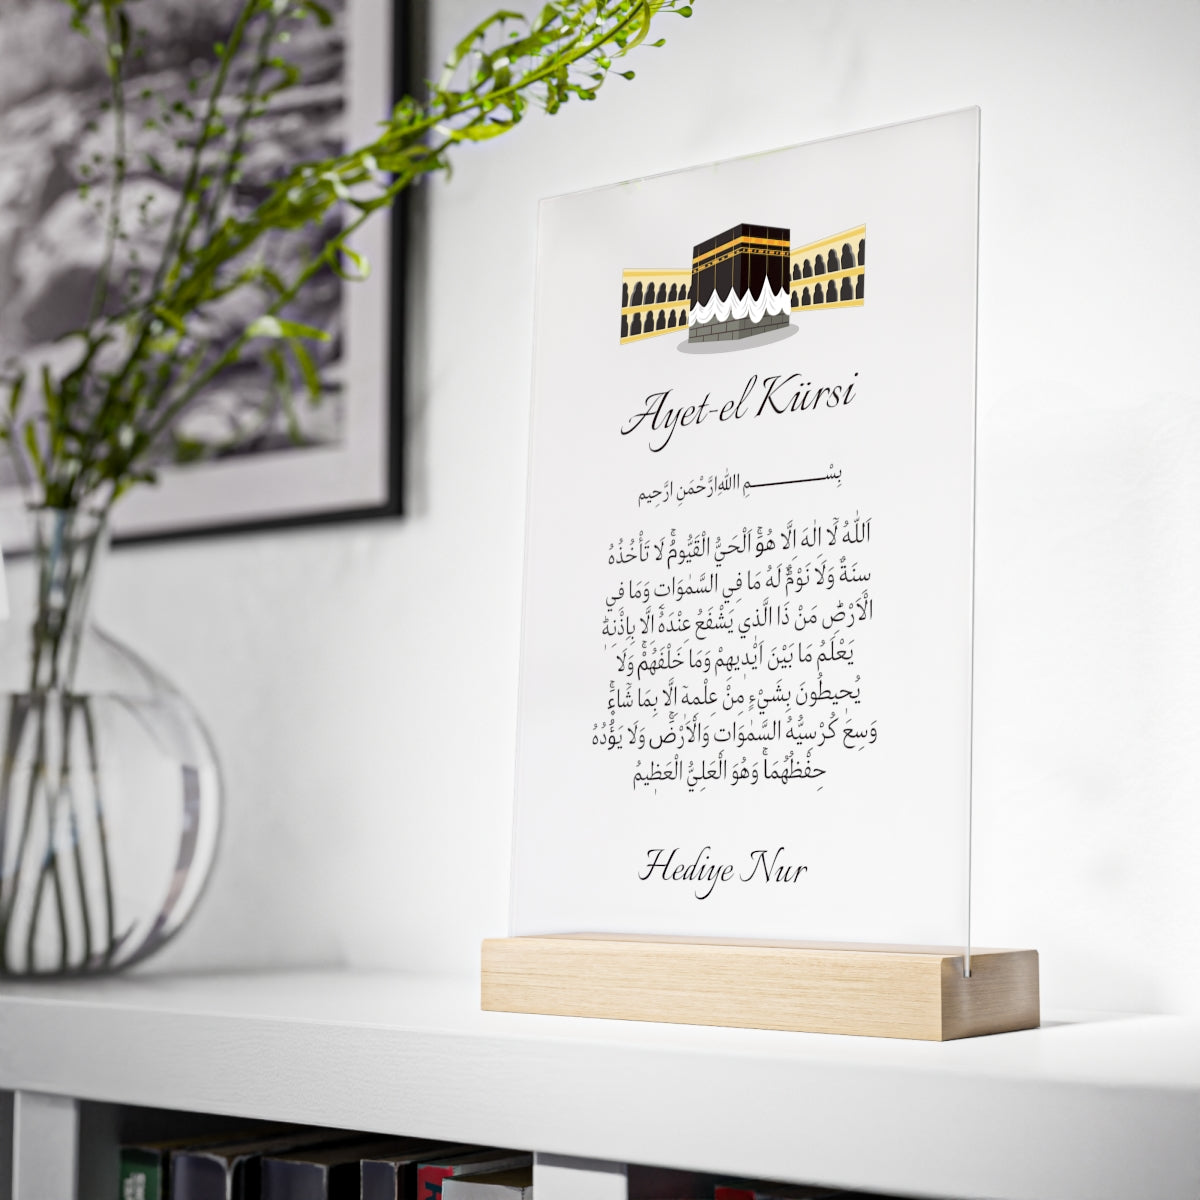 Ayet-el Kürsi
بِسْــــــــــمِ اللهِ ارَّحْمَنِ ارَّحِيم
اَللّٰهُ لَٓا اِلٰهَ اِلَّا هُوَۚ اَلْحَيُّ الْقَيُّومُۚ لَا تَأْخُذُهُ
سِنَةٌ وَلَا نَوْمٌۜ لَهُ مَا فِي السَّمٰوَاتِ وَمَا فِي
الْاَرْضِۜ مَنْ ذَا الَّذ۪ي يَشْفَعُ عِنْدَهُٓ اِلَّا بِاِذْنِه۪ۜ
يَعْلَمُ مَا بَيْنَ اَيْد۪يهِمْ وَمَا خَلْفَهُمْۚ وَلَا
يُح۪يطُونَ بِشَيْءٍ مِنْ عِلْمِه۪ٓ اِلَّا بِمَا شَٓاءَۚ
وَسِعَ كُرْسِيُّهُ السَّمٰوَاتِ وَالْاَرْضَۚ وَلَا يَؤُ۫دُهُ
حِفْظُهُمَاۚ وَهُوَ الْعَلِيُّ الْعَظ۪يمُ
Hediye Nur